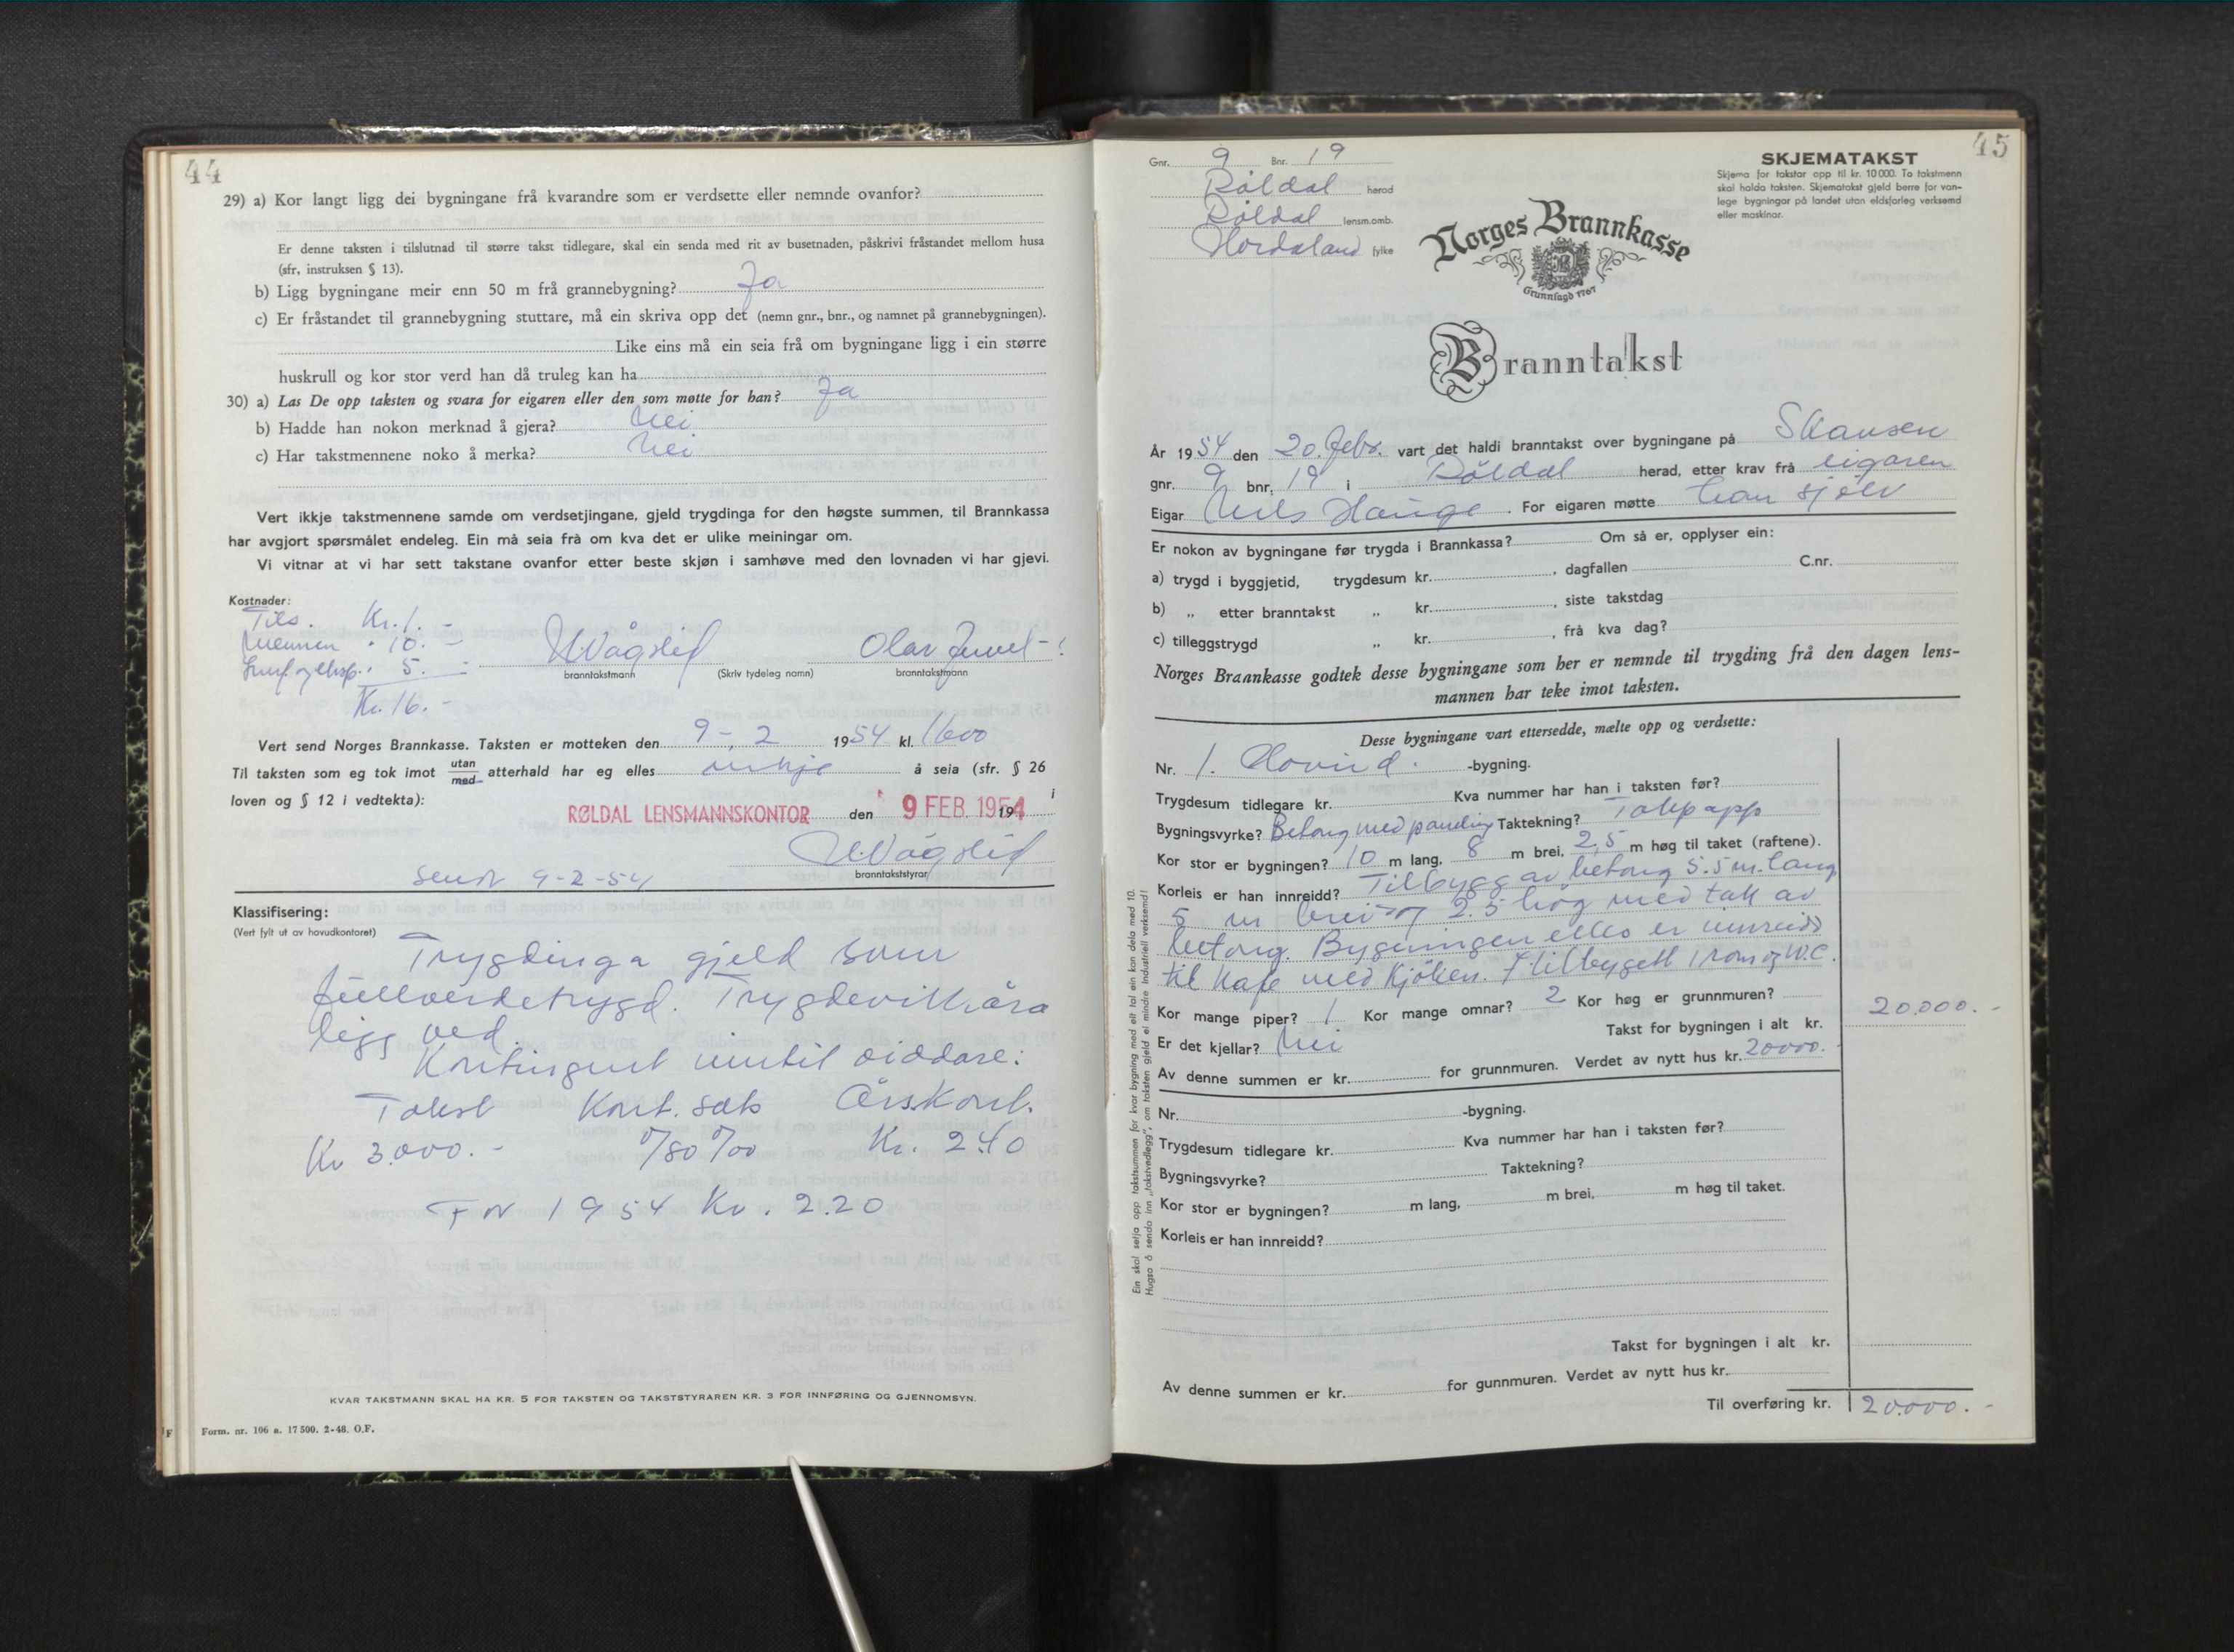 44
29) a) Kor langt ligg dei bygningane frå kvarandre som er verdsette eller nemnde ovanfor?
Er denne taksten i tilslutnad til større takst tidlegare, skal ein senda med rit av busetnaden, påskrivi fråstandet mellom husa
(sfr. instruksen § 13).
b) Ligg bygningane meir enn 50 m frå grannebygning? Ja
c) Er fråstandet til grannebygning stuttare, må ein skriva opp det (nemn gnr., bnr., og namnet på grannebygningen).
Like eins må ein seia frå om bygningane ligg i ein større
huskrull og kor stor verd han då truleg kan ha
30) a) Las De opp taksten og svara for eigaren eller den som møtte for han? Ja
b) Hadde han nokon merknad å gjera? Nei
c) Har takstmennene noko å merka? Nei
Vert ikkje takstmennene samde om verdsetjingane, gjeld trygdinga for den høgste summen, til Brannkassa
har avgjort spørsmålet endeleg. Ein må seia frå om kva det er ulike meiningar om.
Vi vitnar at vi har sett takstane ovanfor etter beste skjøn i samhøve med den lovnaden vi har gjevi.
Kostnader:
Tils. Kr. 1. -
Mennen " 10. -
5. -
Kr. 16. -
H Vågslid Olav Juvet
branntakstmann (Skriv tydeleg namn) branntakstmann
Vert send Norges Brannkasse. Taksten er motteken den 9 - 2 1954 kl. 1600
Til taksten som eg tok imot utan/med atterhald har eg elles inkje å seia (sfr. § 26
i
loven og § 12 i vedtekta):
RØLDAL LENSMANNSKONTOR den 9 FEB. 1954 19
H Vågslid
branntakststyrar
Sendt 9-2-54
Klassifisering:
(Vert fylt ut av hovudkontoret)
Trygdinga gjeld som
fullverdetrygd. Trygdevilkåra
ligg ved.
Kontingent inntil viddare:
Takst Kont. sats Årskont.
Kr 3.000. - 0/80 0/00 Kr. 2.40
For 1954 Kr. 2.20
KVAR TAKSTMANN SKAL HA KR. 5 FOR TAKSTEN OG TAKSTSTYRAREN KR. 3 FOR INNFØRING OG GJENNOMSYN.
Form. nr. 106 a. 17 500. 2-48. O.F.
45
Gnr. 9 Bnr. 19
Røldal herad
Røldal lensm.omb.
Hordaland fylke
SKJEMATAKST
Skjema for takstar opp til kr. 10 000. To takstmenn
skal halda taksten. Skjematakst gjeld berre for van-
lege bygningar på landet utan eldsfarleg verksemd
eller maskinar.
Norges Brannkasse
Grunnlagd 1767
Branntakst
År 1954 den 20. Febr. vart det haldi branntakst over bygningane på Skansen
gnr. 9 bnr. 19 i Røldal herad, etter krav frå eigaren
Eigar Nils Hauge. For eigaren møtte han sjølv
Er nokon av bygningane før trygda i Brannkassa? Om så er, opplyser ein:
a) trygd i byggjetid, trygdesum kr. , dagfallen C.nr.
b) „ etter branntakst „ kr. , siste takstdag
c) tilleggstrygd „ kr. , frå kva dag?
Norges Brannkasse godtek desse bygningane som her er nemnde til trygding frå den dagen lens-
mannen har teke imot taksten.
Desse bygningane vart ettersedde, mælte opp og verdsette:
Nr. 1. Hovud. -bygning.
Trygdesum tidlegare kr. Kva nummer har han i taksten før?
Bygningsvyrke? Betong med paneling Taktekning? Takpapp
Kor stor er bygningen? 10 m lang, 8 m brei, 2,5 m høg til taket (raftene).
Korleis er han innreidd? Tilbygg av betong 5.5 m. lang
5 m brei og 2.5 høg med tak av
betong. Bygningen elles er innreidd
til Kafe med Kjøken. I tilbygett 1 rom og W.C.
Kor mange piper? 1 Kor mange omnar? 2 Kor høg er grunnmuren?
Er det kjellar? Nei Takst for bygningen i alt kr. 20.000. -
Av denne summen er kr. for grunnmuren. Verdet av nytt hus kr. 20000. -
Nr. -bygning.
Trygdesum tidlegare kr. Kva nummer har han i taksten før?
Bygningsvyrke? Taktekning?
Kor stor er bygningen? m lang, m brei, m høg til taket.
Korleis er han innreidd?
Takst for bygningen i alt kr.
Av denne summen er kr. for gunnmuren. Verdet av nytt hus kr.
Til overføring kr. 20.000. -
Ein skal setja opp takstsummen for kvar bygning med eit tal ein kan dela med 10.
Hugsa å senda inn „takstvedlegg", om taksten gjeld ei mindre industriell verksemd!